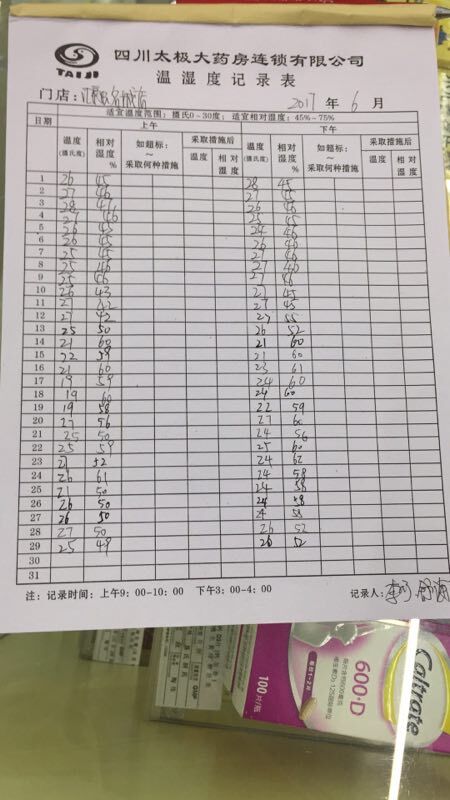 TAIJI 四川太极大药房连锁有限公司
温湿度记录表
门店： 2017 年 6 月
日期 适宜温度范围：摄氏0~30度；适宜相对湿度：45%~75%
上午 下午
温度(摄氏度) 相对湿度% 如超标：~采取何种措施 采取措施后 温度 相对湿度 温度(摄氏度) 相对湿度% 如超标：~采取何种措施 采取措施后 温度 相对湿度
1 26 45 28 45
2 27 46 27 45
3 28 26 46
4 27 46 25 45
5 26 45 24 46
6 26 45 26 46
7 25 45 27 46
8 25 46 27 46
9 25 46 27
10 26 43 27 45
11 27 42 27 45
12 27 42 27 55
13 25 50 26 52
14 21 60 21 60
15 22 59 21 60
16 21 60 23 61
17 19 59 24 60
18 19 60 24 60
19 19 58 22 59
20 27 56 27 60
21 25 50 24 56
22 25 59 25 60
23 21 52 24 62
24 26 61 24 58
25 21 50 24 58
26 26 50 24 58
27 26 50 24 58
28 27 50 26 52
29 25 49 26 52
30
31
注：记录时间：上午9：00-10：00 下午3：00-4：00 记录人：
600+D
Caltrate
100片/瓶